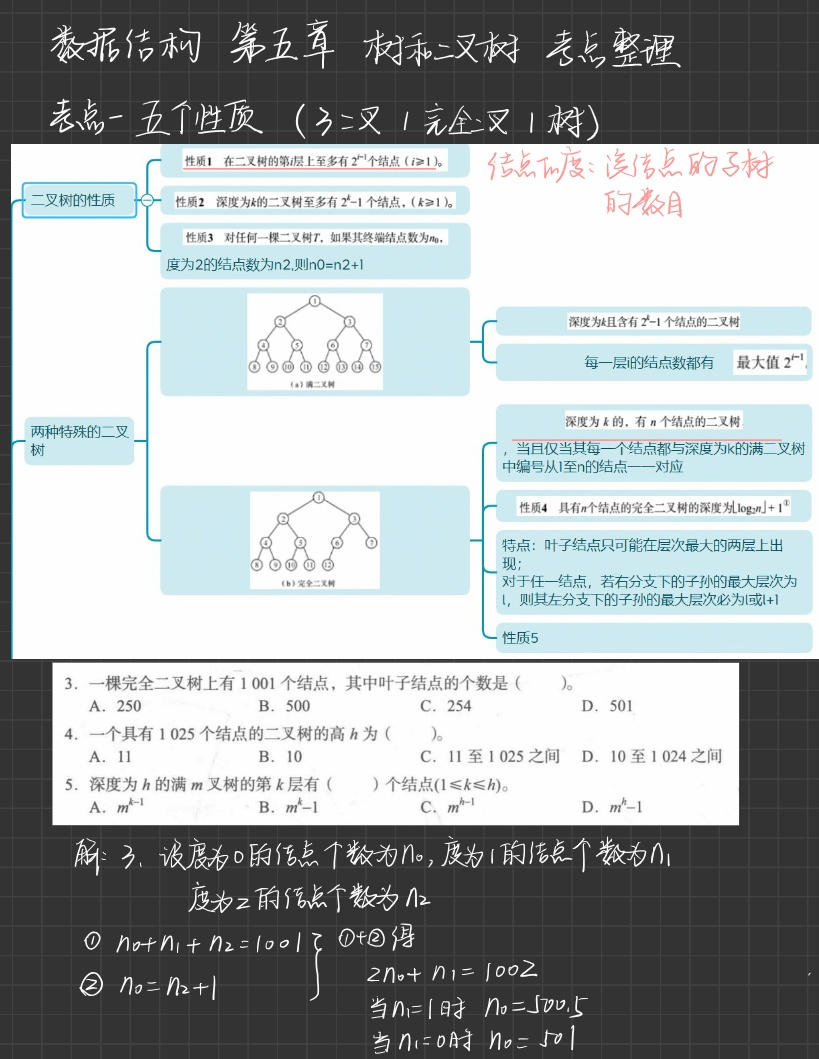 数据结构 第五章 树和二叉树 考点整理
考点一 五个性质 (3二叉 1完全二叉 1树)
结点的度: 该结点的子树
的数目
二叉树的性质
性质1 在二叉树的第i层上至多有 2^{i-1}个结点(i≥1)。
性质2 深度为k的二叉树至多有 2^k-1 个结点,(k≥1)。
性质3 对任何一棵二叉树T, 如果其终端结点数为n₀,
度为2的结点数为n2,则n0=n2+1
两种特殊的二叉
树
1
2 3
4 5 6 7
8 9 10 11 12 13 14 15
(a) 满二叉树
深度为k且含有 2^k-1 个结点的二叉树
每一层i的结点数都有 最大值 2^{i-1},
1
2 3
4 5 6 7
8 9 10 11 12
(b) 完全二叉树
深度为 k 的, 有 n 个结点的二叉树
, 当且仅当其每一个结点都与深度为k的满二叉树
中编号从1至n的结点一一对应
性质4 具有n个结点的完全二叉树的深度为⌊log₂n⌋+1①
特点: 叶子结点只可能在层次最大的两层上出
现;
对于任一结点, 若右分支下的子孙的最大层次为
l, 则其左分支下的子孙的最大层次必为l或l+1
性质5
3. 一棵完全二叉树上有 1 001 个结点, 其中叶子结点的个数是( )。
A. 250 B. 500 C. 254 D. 501
4. 一个具有 1 025 个结点的二叉树的高 h 为( )。
A. 11 B. 10 C. 11 至 1 025 之间 D. 10 至 1 024 之间
5. 深度为 h 的满 m 叉树的第 k 层有( )个结点(1≤k≤h)。
A. m^{k-1} B. m^k-1 C. m^{h-1} D. m^h-1
解: 3、设度为0的结点个数为n₀, 度为1的结点个数为n₁
度为2的结点个数为n₂
① n₀+n₁+n₂=1001 } ①+②得
② n₀=n₂+1
2n₀+n₁=1002
当n₁=1时 n₀=500.5
当n₁=0时 n₀=501